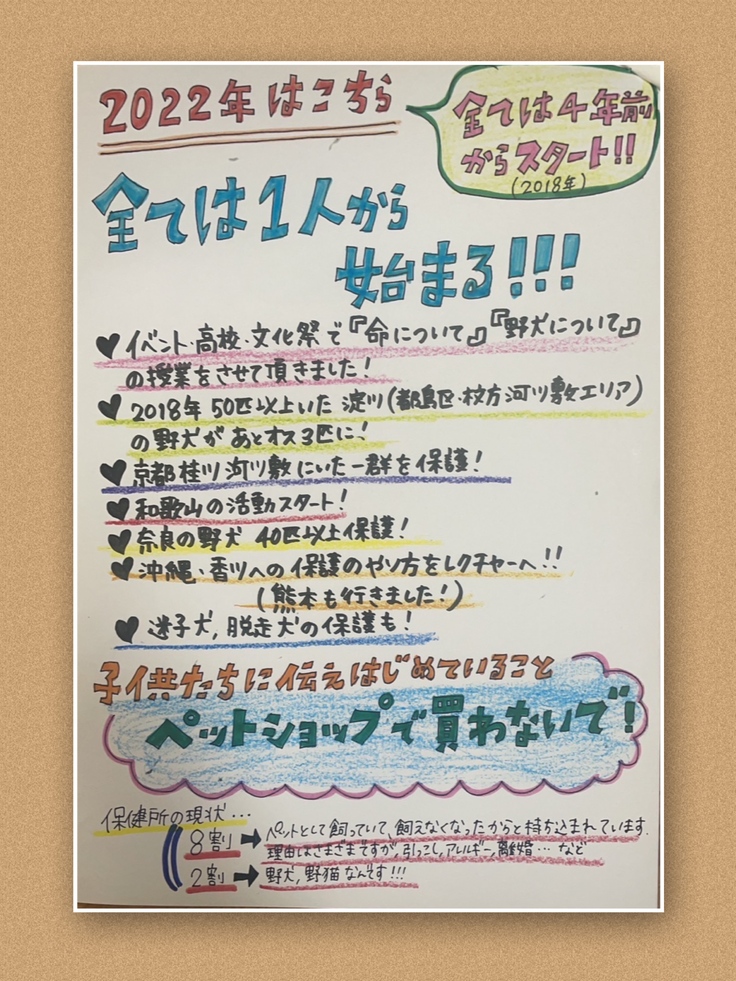 2022年はこちら
全ては4年前
からスタート!!
(2018年)
全ては1人から
始まる!!!
♥イベント・高校・文化祭で『命について』『野犬について』
の授業をさせて頂きました!
♥2018年50匹以上いた淀川(都島区・枚方河川敷エリア)
の野犬があとオス3匹に!
♥京都桂川河川敷にいた一群を保護!
♥和歌山の活動スタート!
♥奈良の野犬 40匹以上保護!
♥沖縄・香川への保護のやり方をレクチャーへ!!
(熊本も行きました!)
♥迷子犬,脱走犬の保護も!
子供たちに伝えはじめていること
ペットショップで買わないで!
保健所の現状…
8割➡ペットとして飼っていて,飼えなくなったからと持ち込まれています.
理由はさまざまですが,引っこし,アレルギー,離婚…など
2割➡野犬,野猫なんです!!!